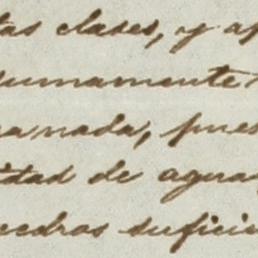 tas clases, y ap
sumamente
na nada, pues
idad de agua
iedras suficie